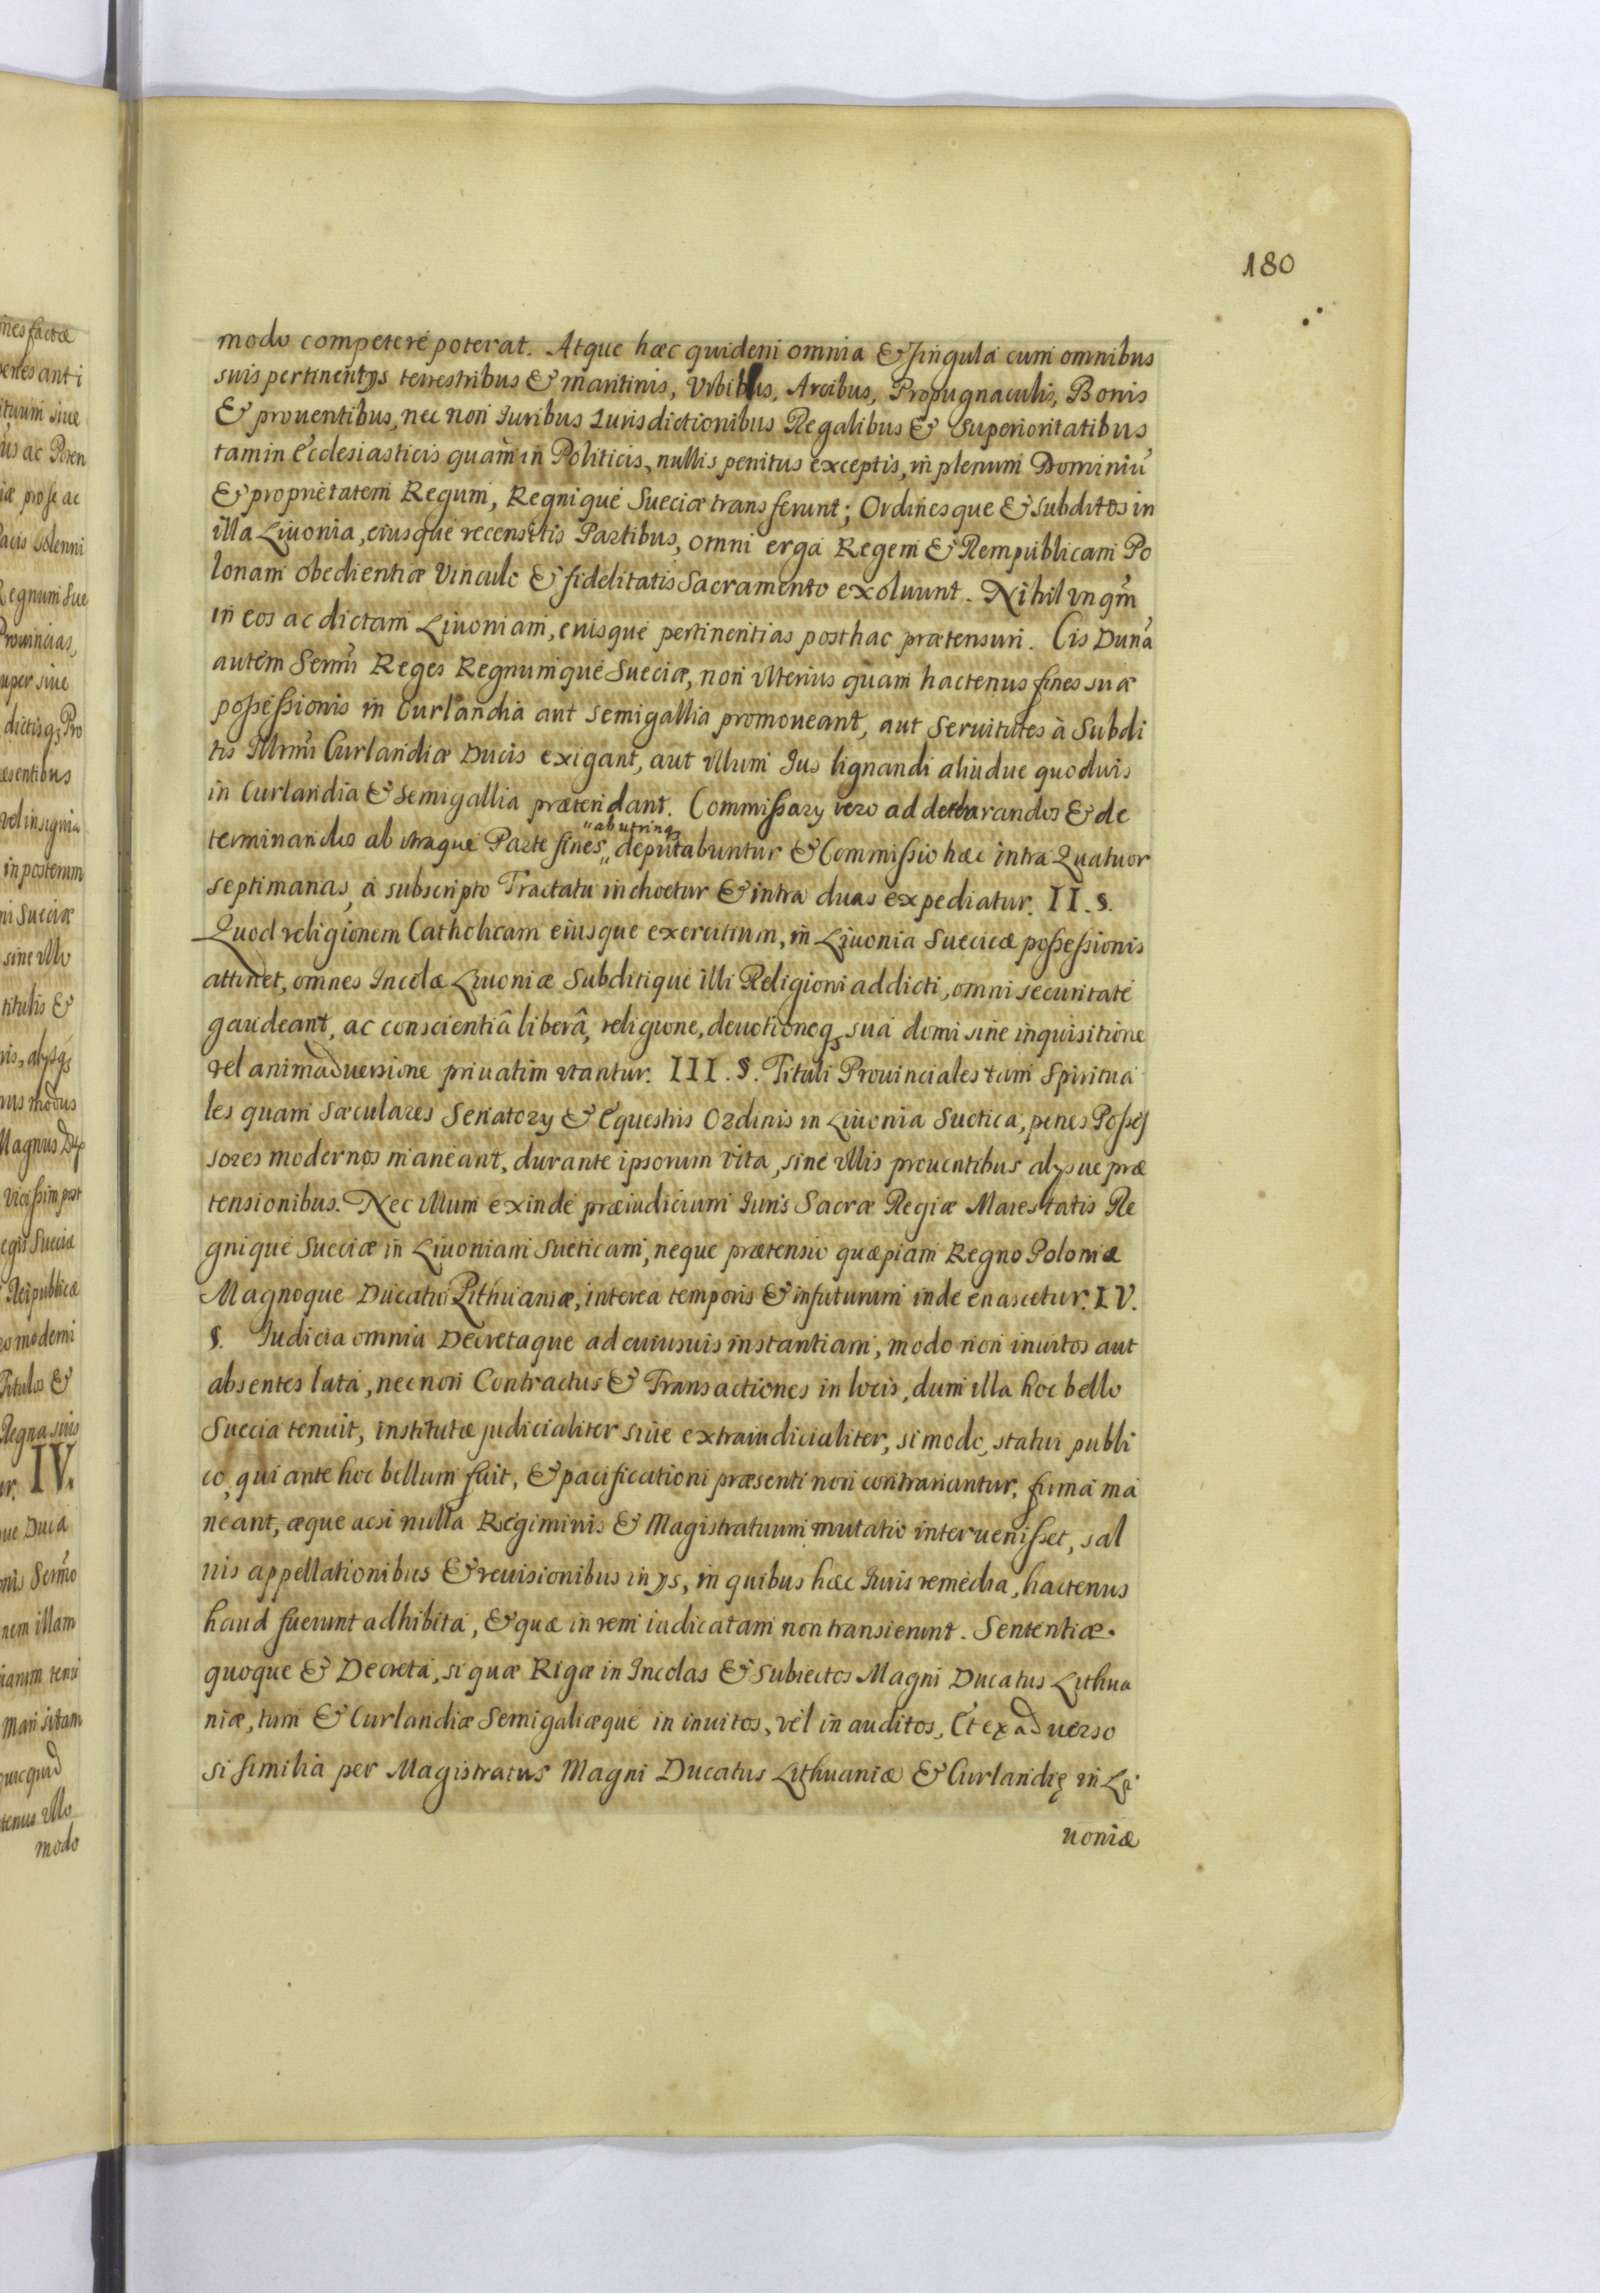 180
modo competere poterat. Atque hæc quidem omnia & singula cum omnibus
suis pertinentys terrestribus & maritimis, Vrbibus, Arcibus, Propugnaculis, Bonis
& prouentibus, nec non Iuribus Iurisdictionibus Regalibus & Superioritatibus
tam in Ecclesiasticis quàm in Politicis, nullis penitus exceptis, in plenum Dominiũ
& proprietatem Regum, Regnique Sueciæ transferunt; Ordinesque & subditos in
illa Liuonia, eiusque recensitis Partibus, omni erga Regem & Rempublicam Po
lonam obedientiæ Vinculo & fidelitatis Sacramento exoluunt. Nihil vnqm̃
in eos ac dictam Liuoniam, euisque pertinentias posthac prætensuri. Cis Dunã
autem Sermĩ Reges Regnumque Sueciæ, non vlterius quàm hactenus fines suæ
possessionis in Curlandia aut Semigallia promoueant, aut Seruitutes à Subdi
tis Illrmĩ Curlandiæ Ducis exigant, aut vllum Ius lignandi aliudue quoduis
in Curlandia & Semigallia prætendant. Commissary vero ad declarandos & de
terminandos ab vtraque Parte fines „ deputabuntur & Commissio hæc intra Quatuor
„ab utrinq₃
septimanas, à subscripto Tractatu inchoetur & intra duas expediatur. II. §.
Quod religionem Catholicam eiusque exercitium, in Liuonia Suecicæ possessionis
attinet, omnes Incolæ Liuoniæ Subditique illi Religioni addicti, omni securitate
gaudeant, ac conscientiâ liberâ, religione, deuotioneq₃ sua domi sine inquisitione
vel animaduersione priuatim vtantur. III. §. Tituli Prouinciales tam Spiritua
les quam sæculares Senatory & Equestris Ordinis in Liuonia Suetica, penes Posses
sores modernos maneant, durante ipsorum vita, sine vllis prouentibus alysue præ
tensionibus. Nec vllum exinde præiudicium Iuris Sacræ Regiæ Maiestatis Re
gnique Sueciæ in Liuoniam Sueticam, neque prætensio quæpiam Regno Poloniæ
Magnoque Ducatui Lithuaniæ, interea temporis & in futurum inde enascetur. IV.
§. Iudicia omnia Decretaque ad cuiusuis instantiam, modo non inuitos aut
absentes lata, necnon Contractus & Transactiones in locis, dum illa hoc bello
Suecia tenuit, institutæ judicialiter siue extraiudicialiter, si modo, statui publi
co, qui ante hoc bellum fuit, & pacificationi præsenti non contrariantur, firma ma
neant, æque acsi nulla Regiminis & Magistratuum mutatio interuenisset, sal
uis appellationibus & reuisionibus in ys, in quibus hæc Iuris remedia, hactenus
haud fuerunt adhibita, & quæ in rem iudicatam non transierunt. Sententiæ.
quoque & Decreta, si quæ Rigæ in Incolas & Subiectos Magni Ducatus Lithua
niæ, tum & Curlandiæ Semigaliæque in inuitos, vel in auditos, Et ex aduerso
si similia per Magistratus Magni Ducatus Lithuaniæ & Curlandię in Li
uoniæ